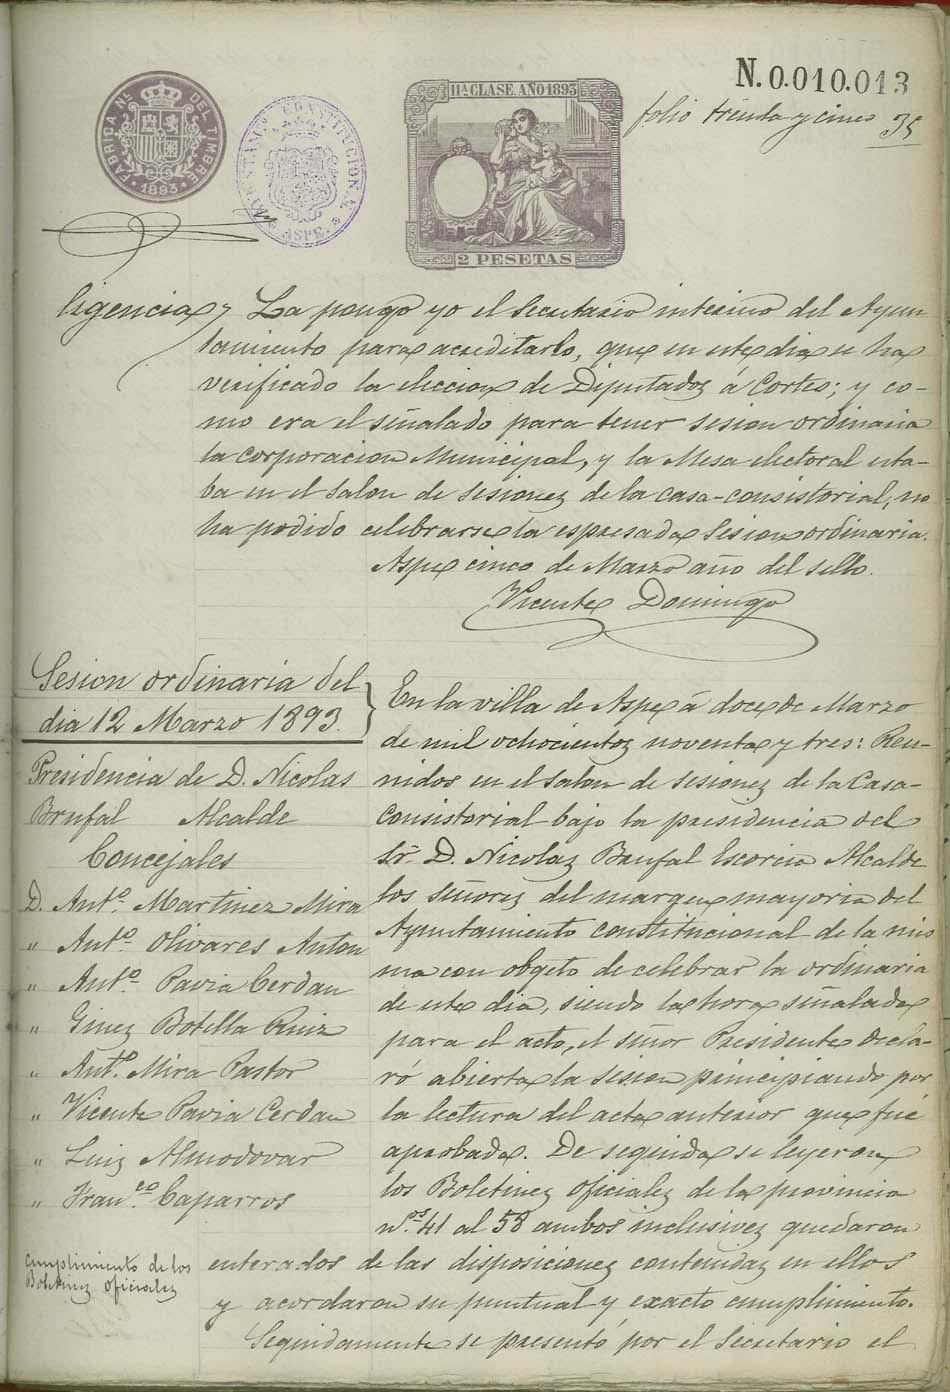 N. 0.010.013
folio treinta y cinco 35
FABRICA Nl. DEL TIMBRE
1893
AYUNTAM.to CONSTITUCIONAL
ASPE.
11ª CLASE. AÑO 1893
2 PESETAS
ligencia La pongo yo el Secretario interino del Ayun-
tamiento para acreditarlo, que en este dia se ha
verificado la eleccion de Diputados á Cortes; y co-
mo era el señalado para tener sesion ordinaria
la corporacion Municipal, y la Mesa electoral esta-
ba en el salon de sesiones de la casa-consistorial, no
ha podido celebrarse la espresada Sesion ordinaria.
Aspe cinco de Marzo año del sello.
Vicente Domingo
Sesion ordinaria del
dia 12 Marzo 1893.
Presidencia de D. Nicolas
Brufal Alcalde
Concejales
D. Ant.º Martinez Mira
" Ant.º Olivares Anton
" Ant.º Pavia Cerdan
" Ginez Botella Ruiz
" Ant.º Mira Pastor
" Vicente Pavia Cerdan
" Luiz Almodovar
" Fran.co Caparros
cumplimiento de los
Boletinez oficialez
En la villa de Aspe á doce de Marzo
de mil ochocientoz noventa y tres: Reu-
nidos en el salon de sesionez de la Casa-
Consistorial bajo la presidencia del
Sr. D. Nicolaz Brufal Escorin Alcalde
los señorez del margen mayoria del
Ayuntamiento constitucional de la mis
ma con obgeto de celebrar la ordinaria
de este dia, siendo la hora señalada
para el acto, el señor Presidente decla-
ró abierta la sesion principiando por
la lectura del acta anterior que fué
aprobada. De seguida se leyeron
los Boletinez oficialez de la provincia
n.os 41 al 58 ambos inclusivez quedaron
enterados de las disposicionez contenidaz en ellos
y acordaron su puntual y exacto cumplimiento.
Seguidamente se presentó por el Secretario el